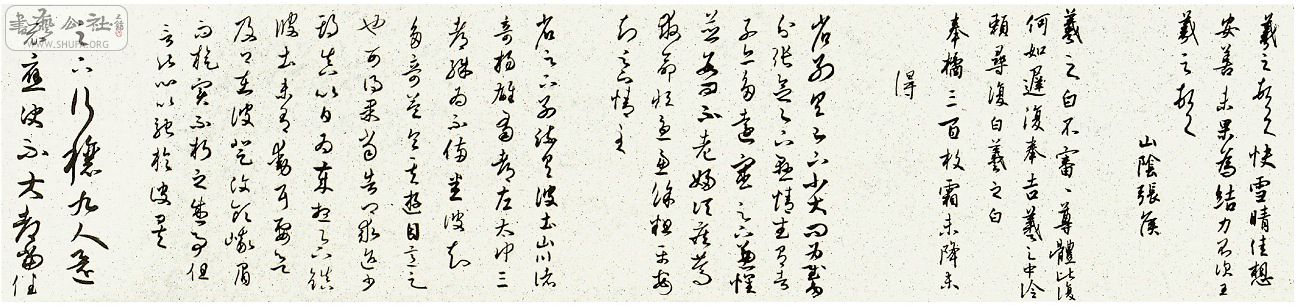 羲之頓首快雪晴佳想
安善未果為結力不次王
羲之頓首
山陰張侯
羲之白不審、尊體比復
何如遲復奉告羲之中冷
賴尋復白羲之白
奉橘三百枚霜未降未
得
省別具足下小大問為慰
分張念足下懸情武昌
子亦多遠宦足下兼懷
並數問不老婦頃疾篤
救命恒憂慮餘粗平安
知足下情至
省足下別疏具彼土山川諸
奇揚雄蜀都左太沖三
都殊為不備悉彼故
多奇益令其遊目意足
也可得果當告卿求迎少
期真以日為歲想足下鎮
彼土未有動耳要欲
及卿在彼登汶領峨眉
而旋實不朽之盛事但
言此心以馳於彼矣
足下行穰九人還
應決不大都當佳
書藝公社
WWW.SHUFA.ORG